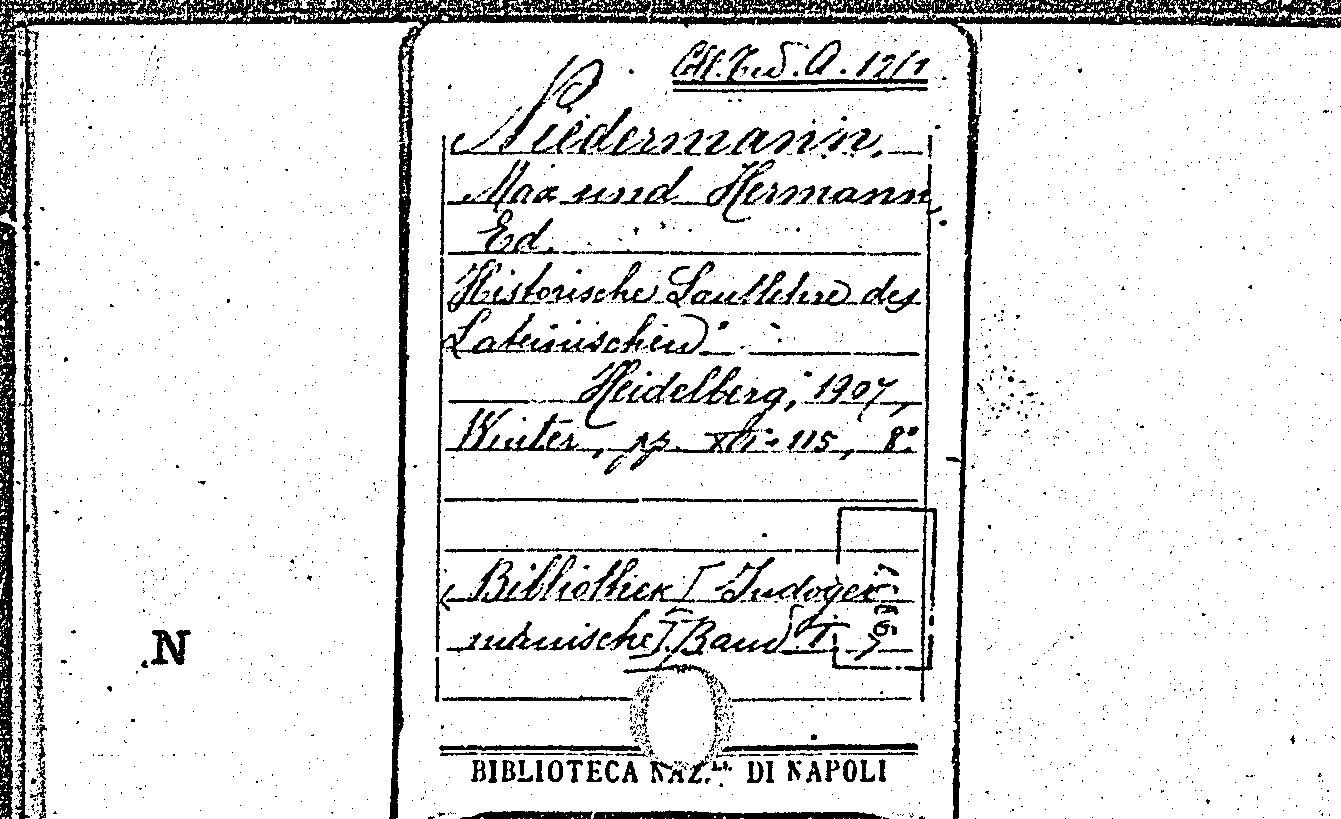 Coll. Ind. A. 12/1
Niedermann,
Max und Hermann,
Ed.
Historische Lautlehre des
Lateinischen
Heidelberg, 1907,
Winter, pp. XVI-115, 8°
(Bibliothek I Indoger-
manische I. Band I.
N
BIBLIOTECA NAZ.LE DI NAPOLI